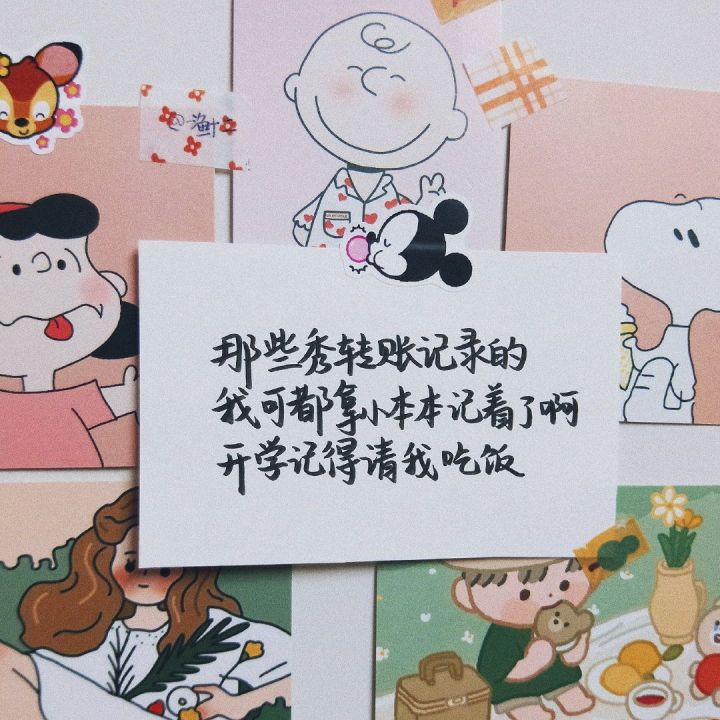 那些秀转账记录的
我可都拿小本本记着了啊
开学记得请我吃饭